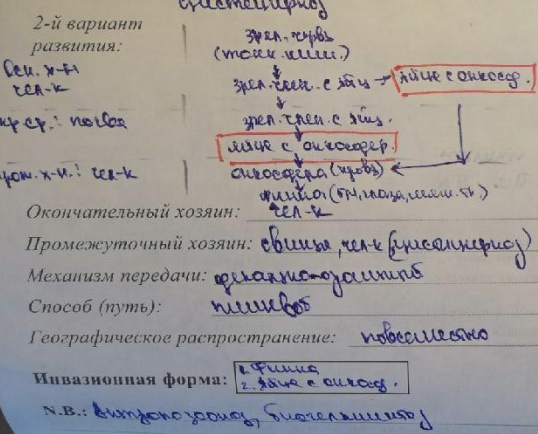 цистицеркоз
2-й вариант развития:
зрел. червь
(тонк. киш.)
осн. х-н
чел-к
зрел. член. с яйц → яйце с онкосф.
зрел. член. с яйц.
внеш. ср.: почва
яйце с онкосфер.
онкосфера (кровь)
пром. х-н.: чел-к
финна (гм, глаза, мыш. тк.)
Окончательный хозяин: чел-к
Промежуточный хозяин: свинья, чел-к (цистицеркоз)
Механизм передачи: фекально-оральный
Способ (путь): пищевой
Географическое распространение: повсеместно
Инвазионная форма: 1. Финна
2. яйце с онкосф.
N.B.: Антропозооноз, биогельминтоз